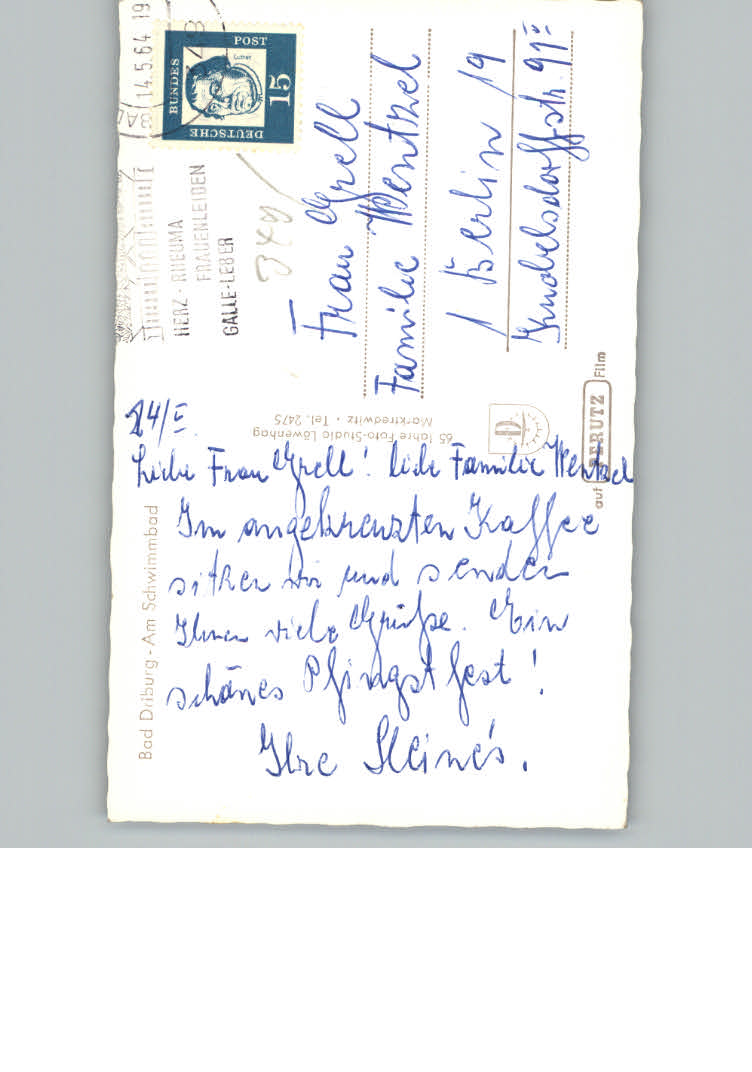 14/V.
Liebe Frau Grell! liebe Familie Wentzel
Im angekreuzten Kaffee
sitzen wir und senden
Ihnen viele Grüße. Ein
schönes Pfingstfest!
Ihre Steinés.
Bad Driburg - Am Schwimmbad
65 Jahre Foto-Studio Löwenhag
Marktredwitz • Tel. 2475
auf PERUTZ Film
14.5.64 19
HERZ - RHEUMA
FRAUENLEIDEN
GALLE-LEBER
DEUTSCHE
BUNDES
POST
15
Luther
Frau Grell
Familie Wentzel
1 Berlin 19
Knobelsdorffstr. 91 V